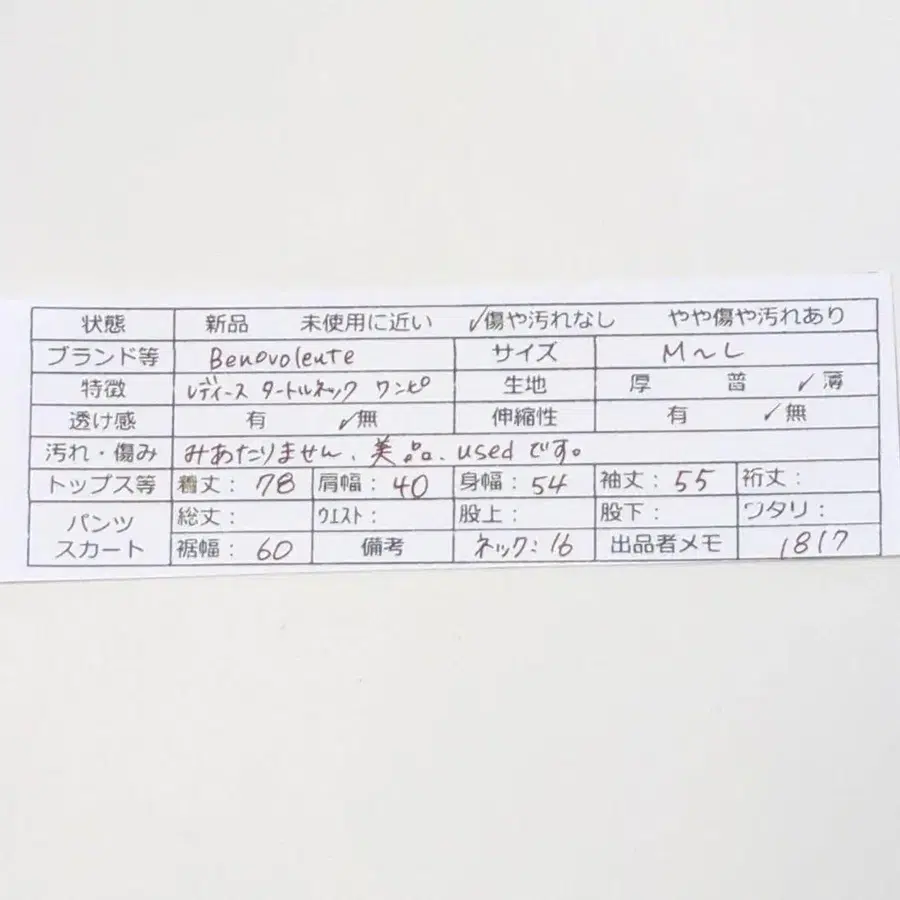 状態 新品 未使用に近い ✓傷や汚れなし やや傷や汚れあり
ブランド等 Benovoleute サイズ M～L
特徴 レディース タートルネック ワンピ 生地 厚 普 ✓薄
透け感 有 ✓無 伸縮性 有 ✓無
汚れ・傷み みあたりません、美品、usedです。
トップス等 着丈：78 肩幅：40 身幅：54 袖丈：55 裄丈：
パンツ スカート 総丈： ウエスト： 股上： 股下： ワタリ：
裾幅：60 備考 ネック：16 出品者メモ 1817